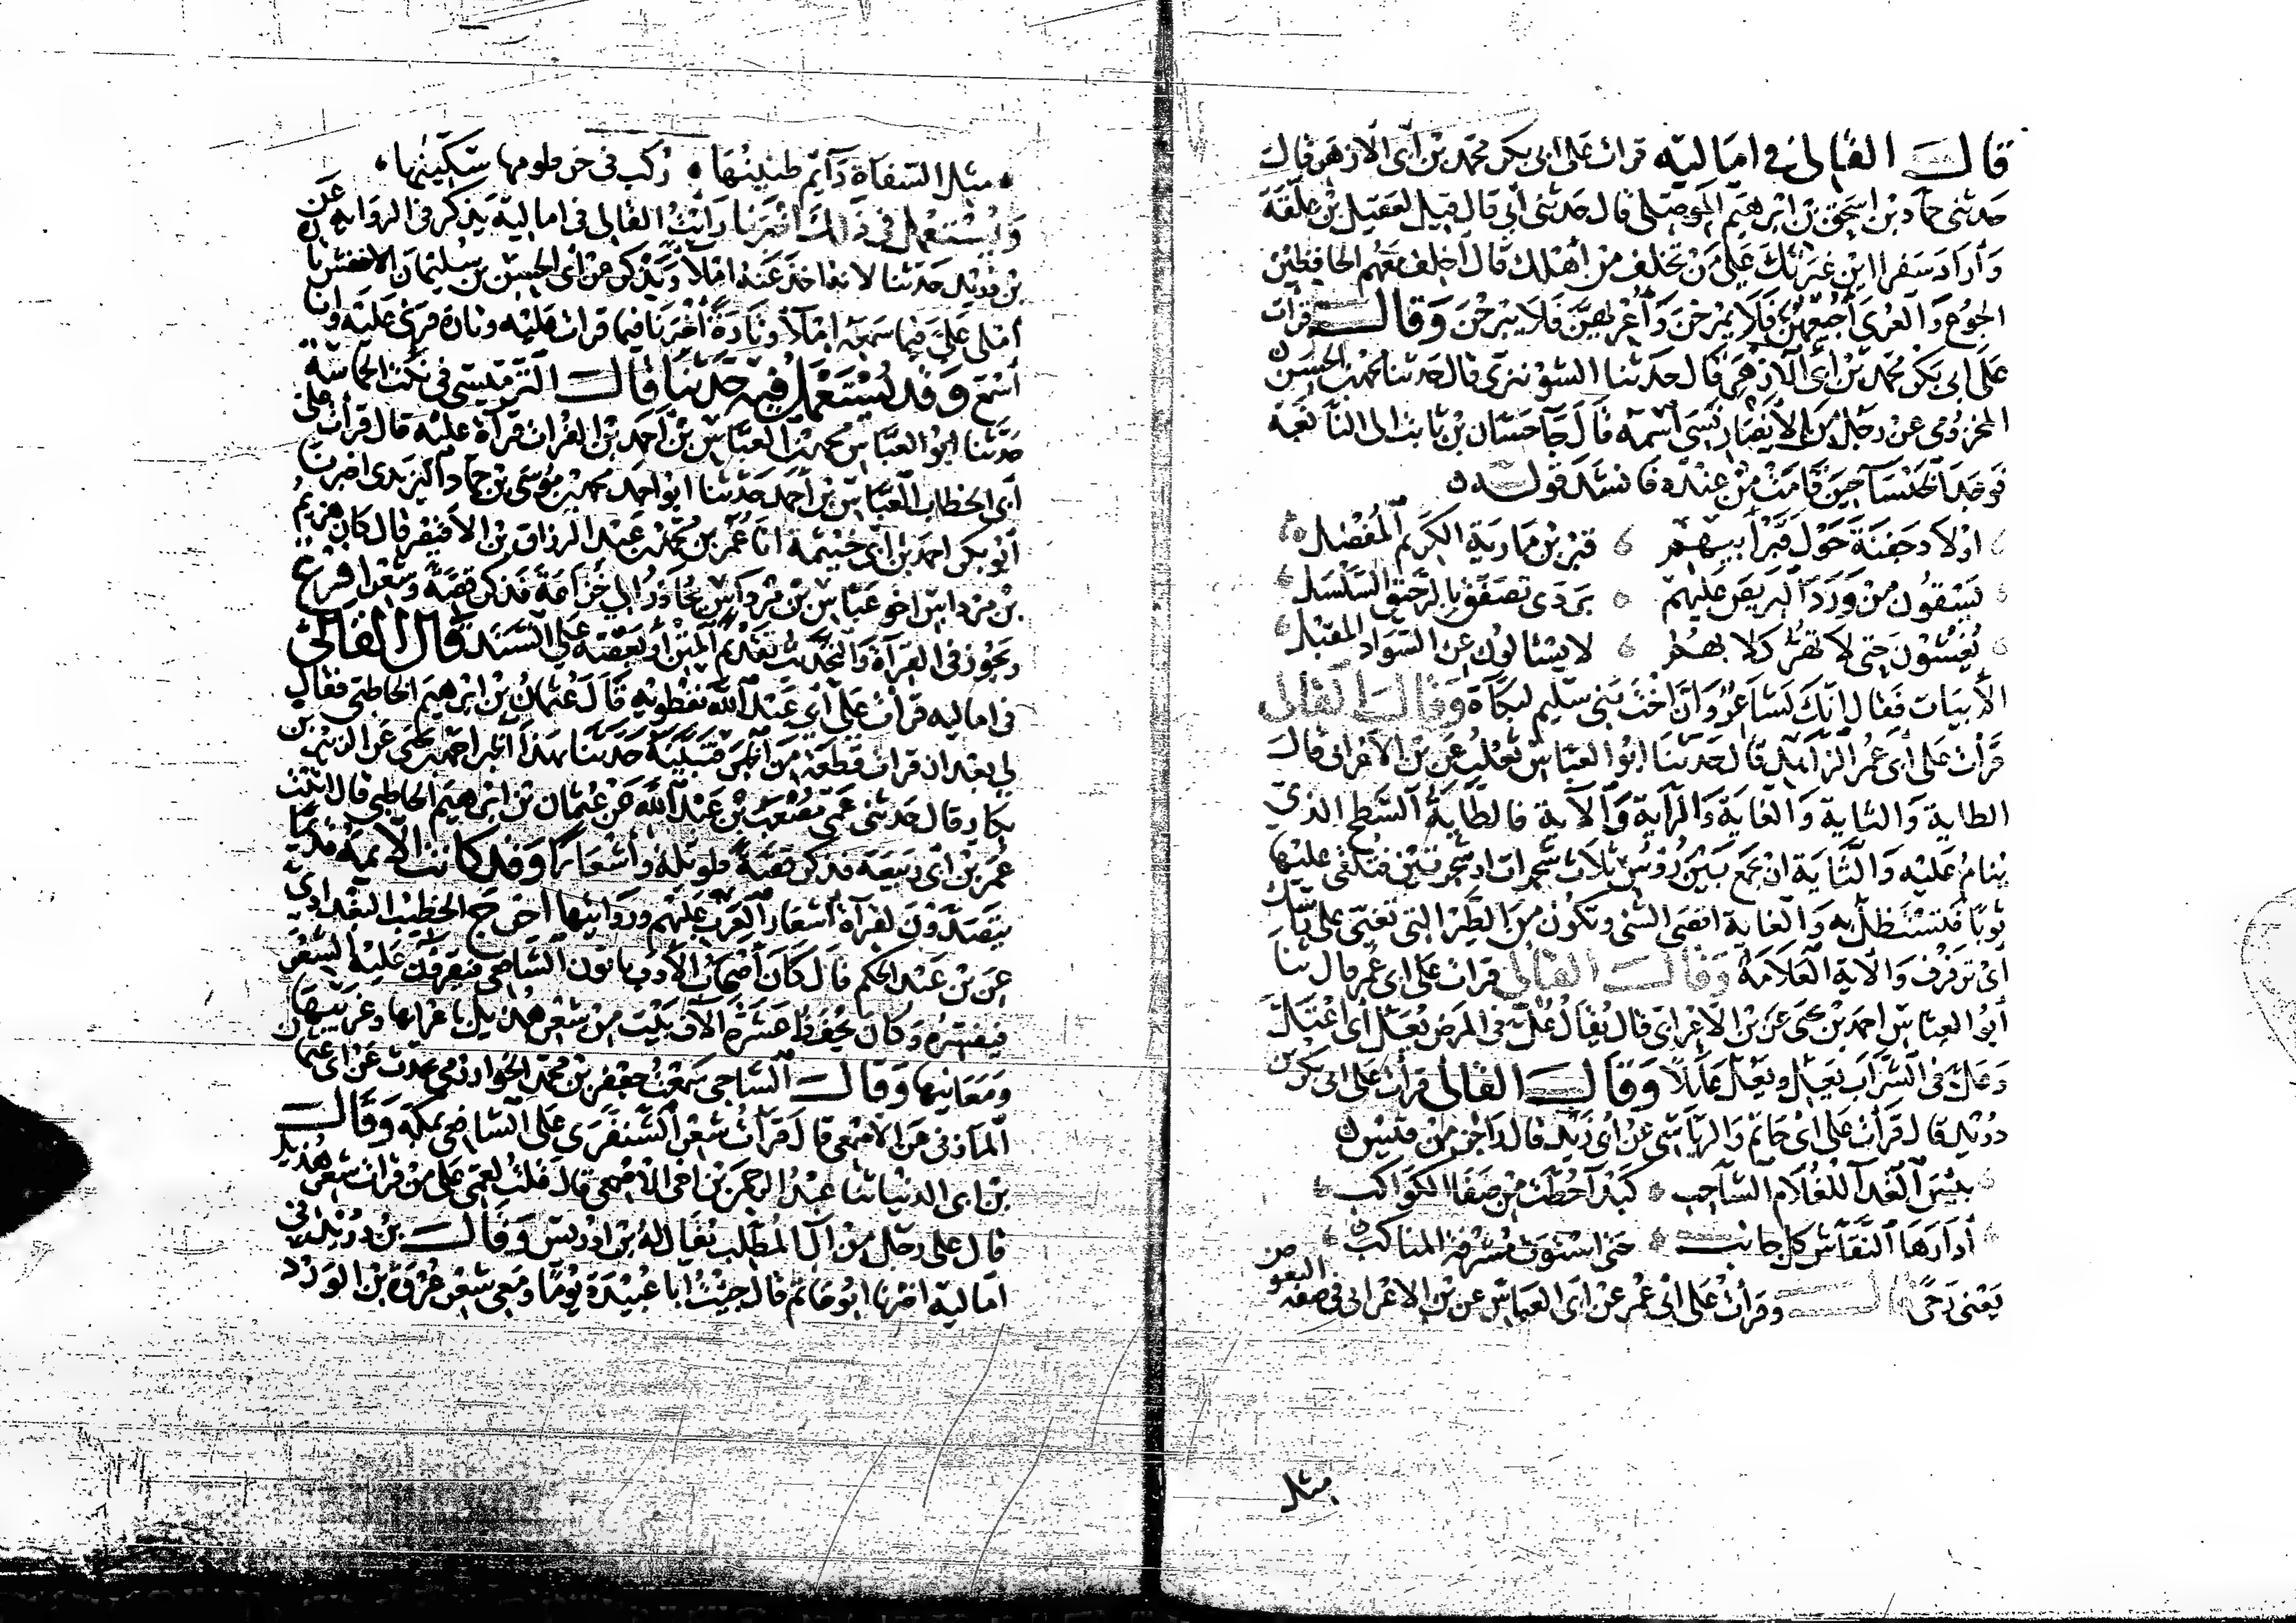 قال القالى فى اماليه قرات على ابى بكر محمد بن ابى الازهر قال
حدثنى حماد بن اسحق بن ابرهيم الموصلى قال حدثنى أبى قال قيل لعقيل بن علفة
وأراد سفرا اين غيرتك على من تخلف من أهلك قال أخلف معهم الحافظين
الجوع والعرى أجيعهن فلا يمرحن وأعريهن فلا يبرحن وقال قرات
على ابى بكر محمد بن أبى الازهر قال حدثنا الشونيزى قال حدثنا محمد بن الحسن
المخزومى عن رجل من الانصار نسى اسمه قال جا حسان بن ثابت الى النابغة
فوجد الخنسا حين قامت من عنده فانشده قوله
اولاد جفنة حول قبر أبيهم قبر بن مارية الكريم المفضل
يسقون من ورد البريص عليهم بردى تصفق بالرحيق السلسل
يغشون حتى لا تهر كلابهم لا يسالون عن السواد المقبل
الأبيات فقال انك لشاعر وان اخت بنى سليم لبكآة وقال القالى
قرأت على أبى عمر الزاهد قال حدثنا ابو العباس ثعلب عن بن الاعرابى قال
الطاية والتاية والغاية والراية والآية فالطاية السطح الذى
ينام عليه والثاية ان تجمع بين رؤس ثلاث شجرات او شجرتين فتلقى عليها
ثوبا فتستظل به والغاية اقصى الشى وتكون من الطير التى تغيى على راسك
اى ترفرف والآية العلامة وقال القالى قرات على ابى عمر قال ثنا
أبو العباس احمد بن يحيى عن بن الاعرابى قال يقال عل فى المرض يعل أى اعتل
وعل فى الشراب يعل ويعل عللا وقال القالى قرات على ابى بكر بن
دريد قال قرأت على ابى حاتم والرياشى عن ابى زيد قال راجز من قيس
بئس الغدآ للغلام الشاحب كبدآ حطت من صفا الكواكب
أدارها النقاش كل جانب حتى استوت مشرفة المناكب
يعنى رحى قال وقرأت على ابى عمر عن ابى العباس عن بن الاعرابى فى صفة البعوض
مثل
مثل السفاة دآئم طنينها ركب فى خرطومها سكينها
ويستعمل فى ذلك اخبرنا رايت القالى فى اماليه يذكر فى الرواية عن
بن دريد حدثنا لانه اخذ عنه املآ ويذكر عن ابى الحسن بن سليمان الاخفش تارة
أملى على فيما سمعه املآ وتارة أخبرنا فيما قرات عليه وتارة قرئ عليه وانا
أسمع وقد يستعمل فيه حدثنا قال الترمسى فى نكت الحماسة
حدثنا ابو العباس محمد بن العباس بن أحمد بن الفرات قرآة عليه قال قرأت على
أبى الخطاب العباس بن أحمد حدثنا ابو احمد محمد بن موسى بن حماد اليزيدى اخبرنا
أبو بكر احمد بن ابى خيثمة انا عمر بن محمد بن عبد الرزاق بن الاقيصر قال كان هزيم
بن مرداس اخو عباس بن مرداس مجاورا الى خزاعة فذكر قصة وشعرا فرع
ويجوز فى القرآة والتحديث تقديم المتن او بعضه على السند قال القالى
فى اماليه قرات على أبى عبد الله نفطويه قال عثمان بن ابرهيم الحاطبى فقال
لى بعد ان قرات قطعة من الخبر فتبينه حدثنا بهذا الخبر احمد بن يحيى عن الزبير بن
بكار قال حدثنى عمى مصعب بن عبد الله عن عثمان بن ابرهيم الحاطبى قال اتيت
عمر بن ابى ربيعة فذكر قصة طويلة وأشعارا وقد كانت الائمة قديما
يتصدون لقرآة أشعار العرب عليهم وروايتها اخرج الخطيب البغدادى
عن بن عبد الحكم قال كان أصحاب الأدب ياتون الشافعى فيقرؤن عليه الشعر
فيفسره وكان يحفظ عشرة الآف بيت من شعر هذيل باعرابها وغريبها
ومعانيها وقال الساجى سمعت جعفر بن محمد الخوارزمى يحدث عن ابى عثمان
المازنى عن الاصمعى قال قرأت شعر الشنفرى على الشافعى بمكة وقال
بن ابى الدنيا ثنا عبد الرحمن بن اخى الاصمعى قال قلت لعمى على من قرات شعر هذيل
قال على رجل من آل المطلب يقال له بن ادريس وقال بن دريد فى
أماليه اخبرنا ابو حاتم قال جئت أبا عبيدة يوما ومعى شعر عروة بن الورد